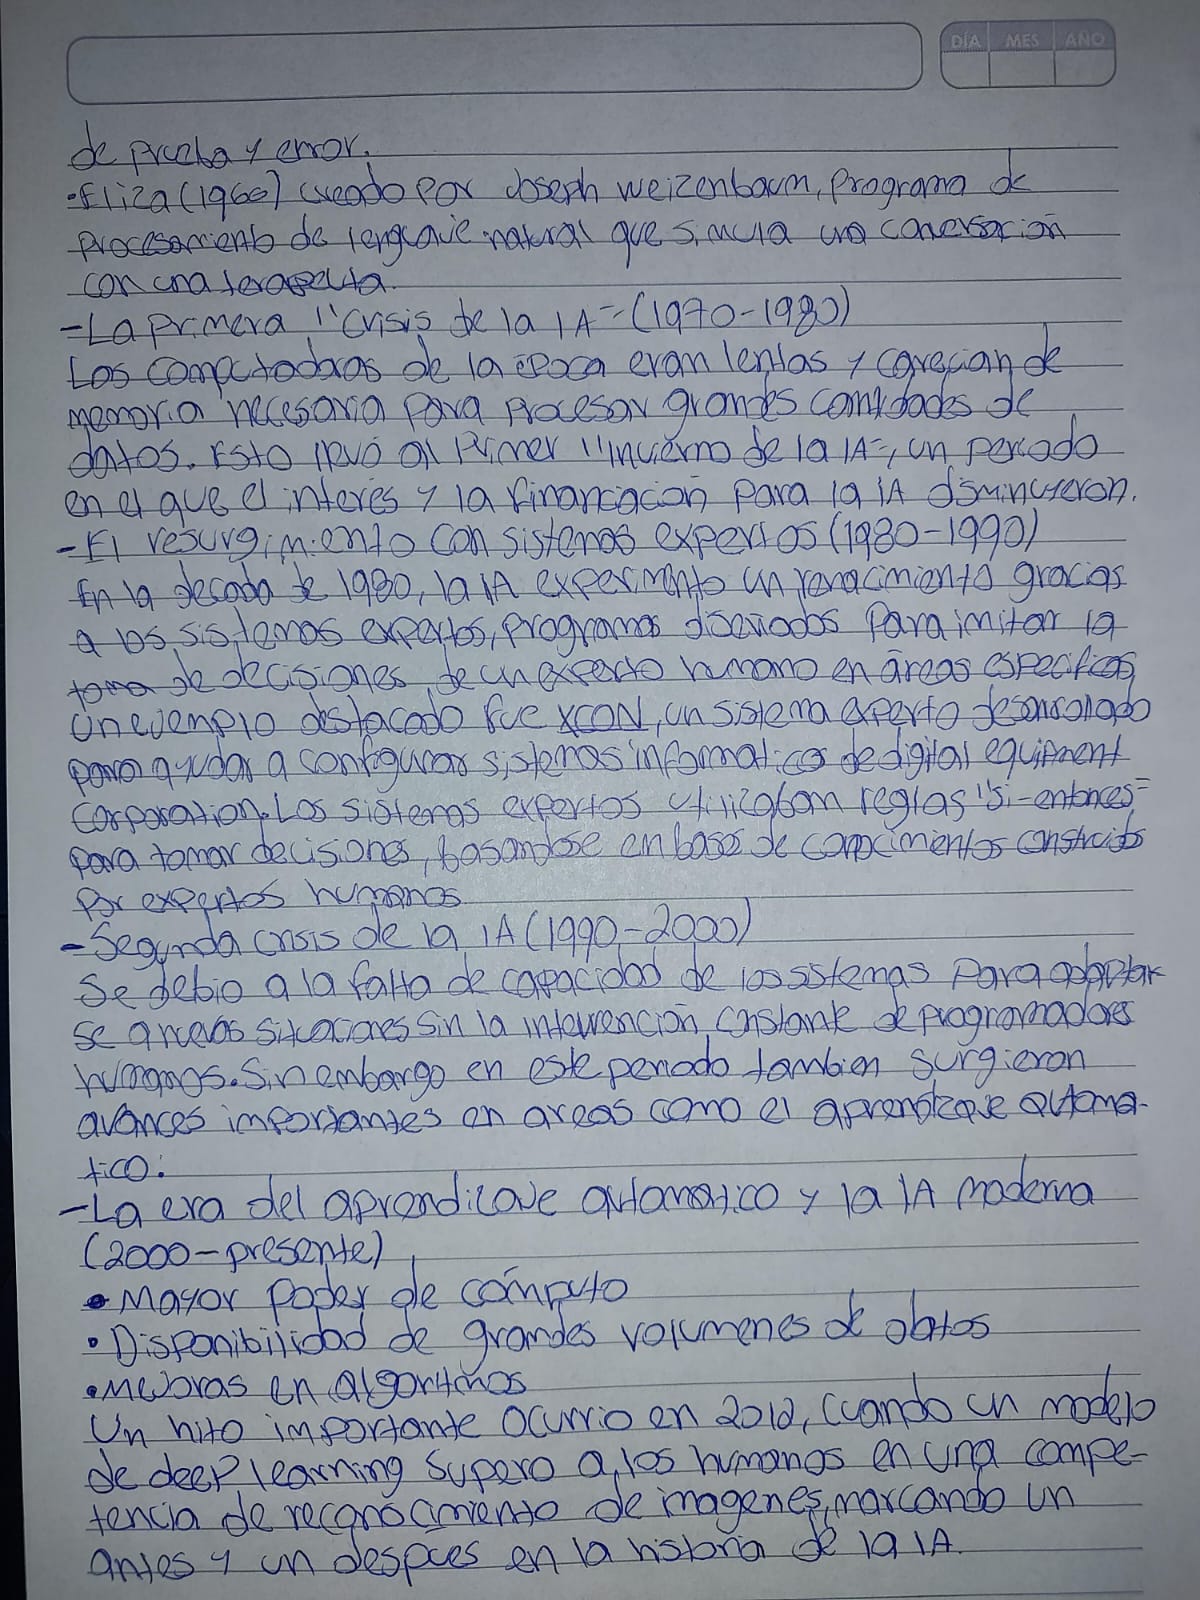 DÍA MES AÑO
de prueba y error.
•Eliza (1966) creado por Joseph Weizenbaum, programa de
procesamiento de lenguaje natural que simula una conversación
con una terapeuta.
-La primera "crisis de la IA" (1970-1980)
Las computadoras de la época eran lentas y carecían de
memoria necesaria para procesar grandes cantidades de
datos. Esto llevó al primer "invierno de la IA", un periodo
en el que el interés y la financiación para la IA disminuyeron.
-El resurgimiento con sistemas expertos (1980-1990)
En la decada de 1980, la IA experimento un renacimiento gracias
a los sistemas expertos, programas diseñados para imitar la
toma de decisiones de un experto humano en áreas especificas
Un ejemplo destacado fue XCON, un sistema experto desarrollado
para ayudar a configurar sistemas informaticos de digital equipment
corporation. Los sistemas expertos utilizaban reglas "si-entonces"
para tomar decisiones, basandose en bases de conocimientos construidos
por expertos humanos
-Segunda crisis de la IA (1990-2000)
Se debio a la falta de capacidad de los sistemas para adaptar
se a nuevas situaciones sin la intervención constante de programadores
humanos. Sin embargo en este periodo tambien surgieron
avances importantes en areas como el aprendizaje automa-
tico.
-La era del aprendizaje automatico y la IA moderna
(2000-presente)
• Mayor poder de cómputo
• Disponibilidad de grandes volumenes de datos
•Mejoras en algoritmos
Un hito importante ocurrio en 2012, cuando un modelo
de deep learning supero a los humanos en una compe-
tencia de reconocimiento de imagenes, marcando un
antes y un despues en la historia de la IA.